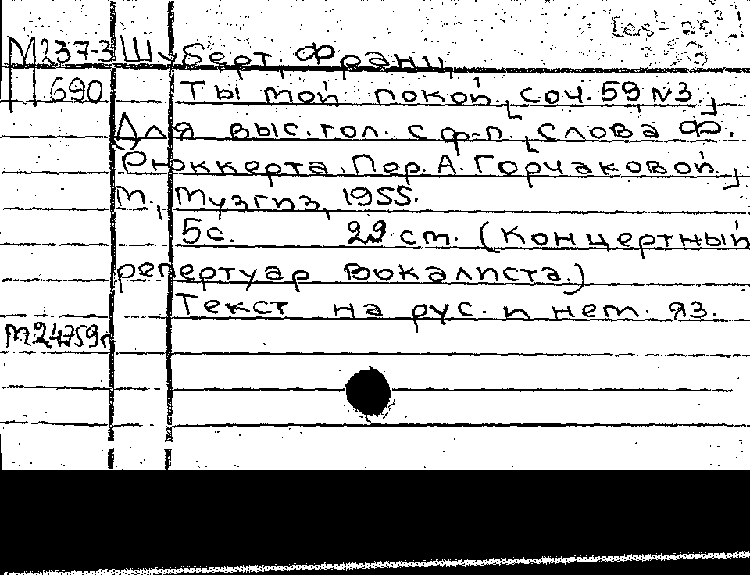 М237-3 Шуберт, Франц
690 Ты мой покой [соч. 59 №3.]
Для выс. гол. с ф-п. [Слова Ф.
Рюккерта. Пер. А. Горчаковой.]
М., Музгиз, 1955.
5с. 29 см. (Концертный
репертуар вокалиста.)
Текст на рус. и нем. яз.
М24759г